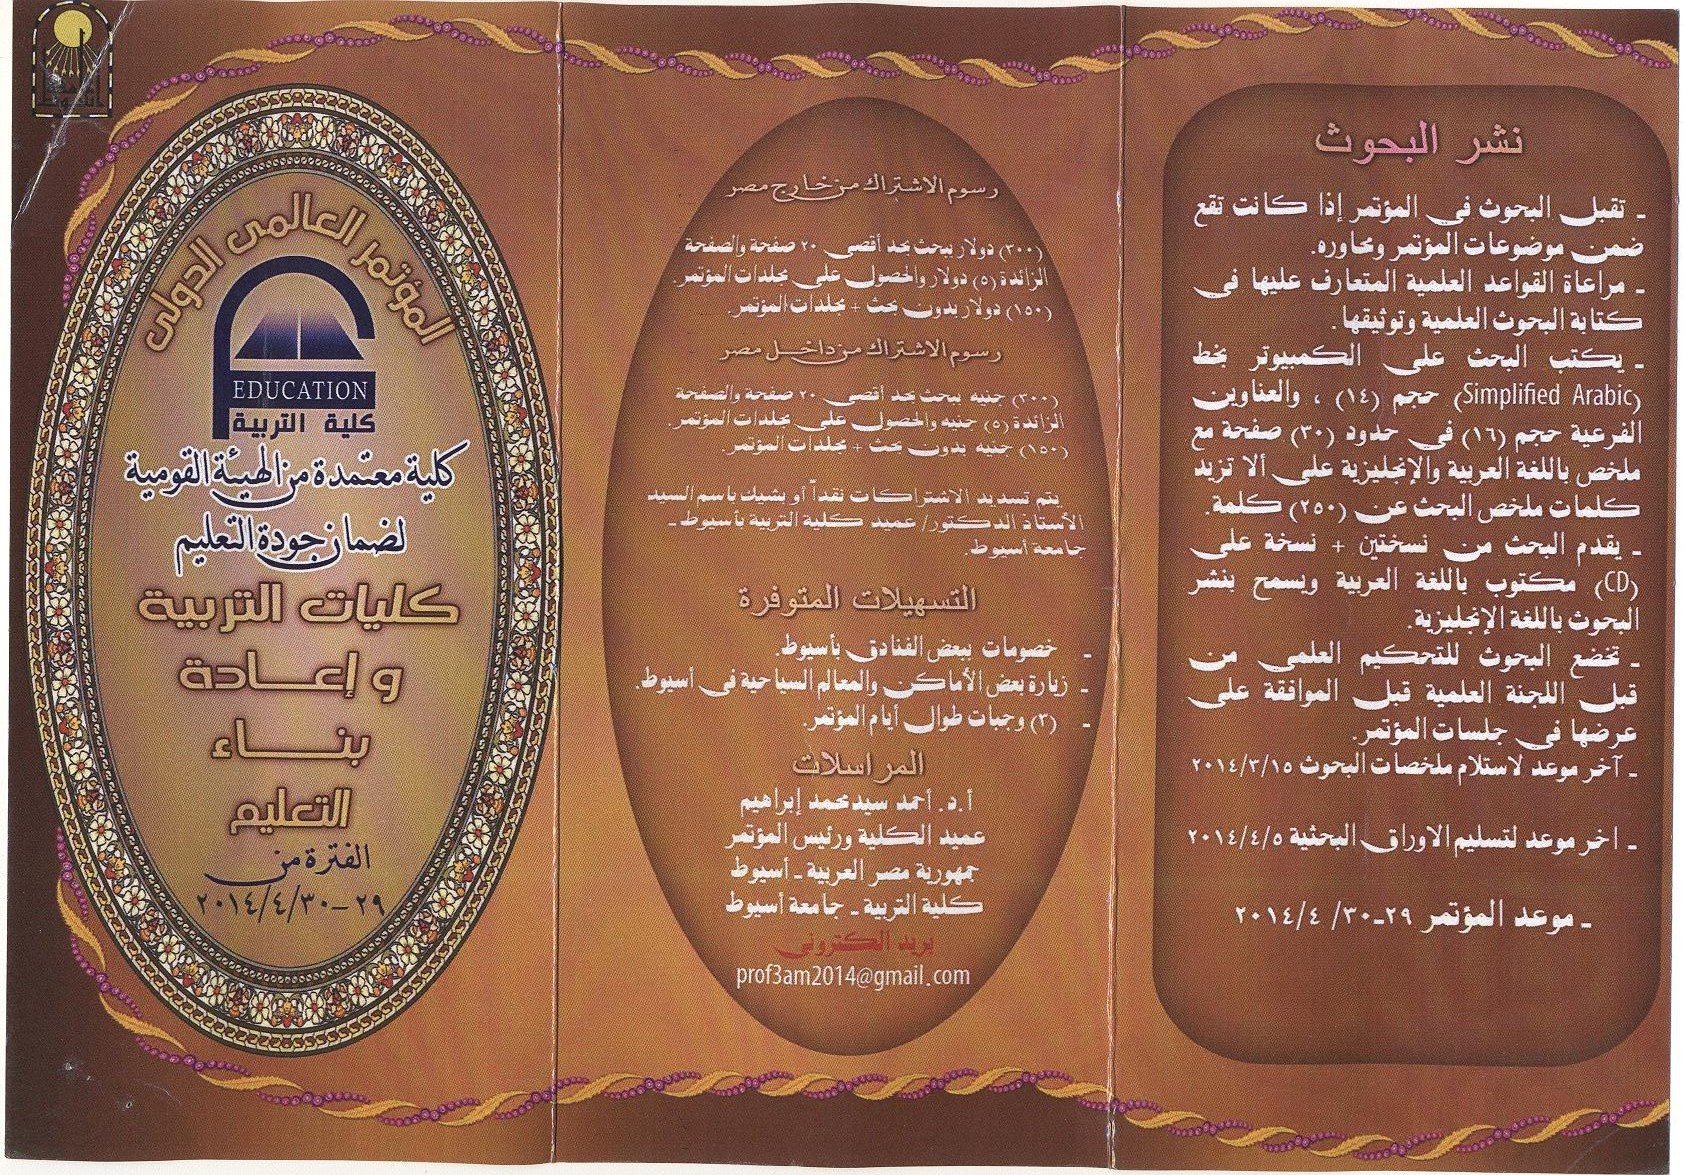 نشر البحوث
ـ تقبل البحوث في المؤتمر إذا كانت تقع
ضمن موضوعات المؤتمر ومحاوره.
ـ مراعاة القواعد العلمية المتعارف عليها في
كتابة البحوث العلمية وتوثيقها.
ـ يكتب البحث على الكمبيوتر بخط
(Simplified Arabic) حجم (١٤) ، والعناوين
الفرعية حجم (١٦) في حدود (٣٠) صفحة مع
ملخص باللغة العربية والإنجليزية على ألا تزيد
كلمات ملخص البحث عن (٢٥٠) كلمة.
ـ يقدم البحث من نسختين + نسخة على
(CD) مكتوب باللغة العربية ويسمح بنشر
البحوث باللغة الإنجليزية.
ـ تخضع البحوث للتحكيم العلمي من
قبل اللجنة العلمية قبل الموافقة على
عرضها في جلسات المؤتمر.
ـ آخر موعد لاستلام ملخصات البحوث ٢٠١٤/٣/١٥
ـ اخر موعد لتسليم الاوراق البحثية ٢٠١٤/٤/٥
ـ موعد المؤتمر ٢٩ـ٣٠/ ٢٠١٤/٤
رسوم الاشتراك من خارج مصر
(٣٠٠) دولار ببحث بحد أقصى ٢٠ صفحة والصفحة
الزائدة (٥) دولار والحصول على مجلدات المؤتمر.
(١٥٠) دولار بدون بحث + مجلدات المؤتمر.
رسوم الاشتراك من داخل مصر
(٣٠٠) جنيه ببحث بحد أقصى ٢٠ صفحة والصفحة
الزائدة (٥) جنيه والحصول على مجلدات المؤتمر.
(١٥٠) جنيه بدون بحث + مجلدات المؤتمر.
يتم تسديد الاشتراكات نقداً أو بشيك باسم السيد
الأستاذ الدكتور/ عميد كلية التربية بأسيوط ـ
جامعة أسيوط.
التسهيلات المتوفرة
ـ خصومات ببعض الفنادق بأسيوط.
ـ زيارة بعض الأماكن والمعالم السياحية في أسيوط.
ـ (٣) وجبات طوال أيام المؤتمر.
المراسلات
أ.د. أحمد سيد محمد إبراهيم
عميد الكلية ورئيس المؤتمر
جمهورية مصر العربية ـ أسيوط
كلية التربية ـ جامعة أسيوط
بريد الكتروني
prof3am2014@gmail.com
المؤتمر العالمى الدولى
EDUCATION
كلية التربية
كلية معتمدة من الهيئة القومية
لضمان جودة التعليم
كليات التربية
و إعادة
بناء
التعليم
الفترة من
٢٩–٢٠١٤/٤/٣٠